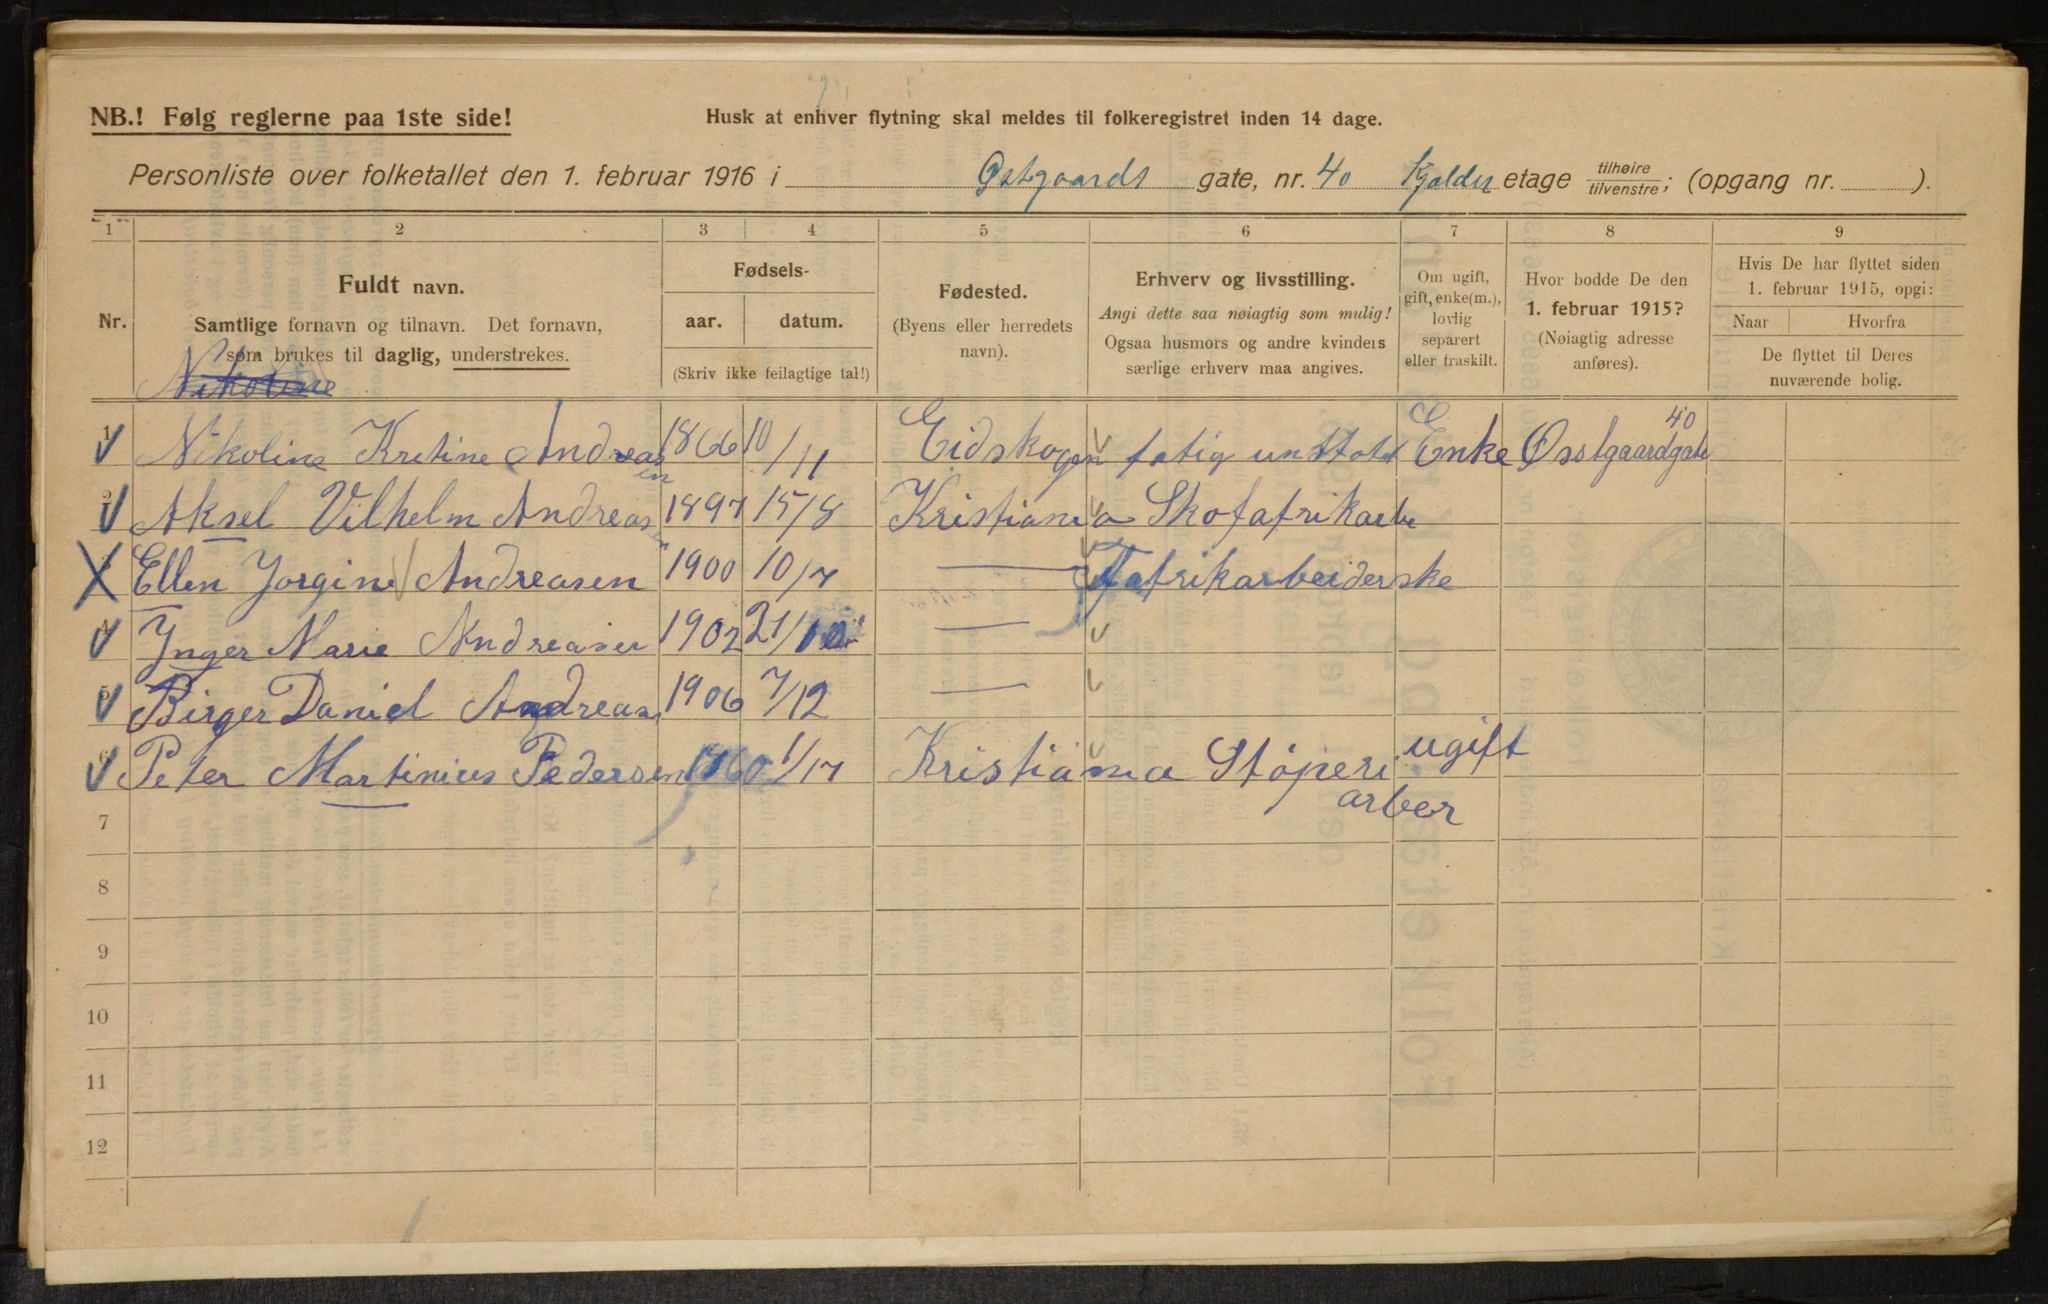 NB.! Følg reglerne paa 1ste side!
Husk at enhver flytning skal meldes til folkeregistret inden 14 dage.
Personliste over folketallet den 1. februar 1916 i Østgaards gate, nr. 40 Kjelder etage tilhøire/tilvenstre; (opgang nr. ).
1 2 3 4 5 6 7 8 9
Nr.
Fuldt navn.
Samtlige fornavn og tilnavn. Det fornavn,
som brukes til daglig, understrekes.
Fødsels-
aar. datum.
(Skriv ikke feilagtige tal!)
Fødested.
(Byens eller herredets
navn).
Erhverv og livsstilling.
Angi dette saa nøiagtig som mulig!
Ogsaa husmors og andre kvinders
særlige erhverv maa angives.
Om ugift,
gift, enke(m.),
lovlig
separert
eller fraskilt.
Hvor bodde De den
1. februar 1915?
(Nøiagtig adresse
anføres).
Hvis De har flyttet siden
1. februar 1915, opgi:
Naar Hvorfra
De flyttet til Deres
nuværende bolig.
Nikoline
1 Nikoline Kristine Andreasen 1866 10/11 Eidskogen fatig unttotet Enke Østgaardgate 40
2 Aksel Vilhelm Andreasen 1897 15/8 Kristiania Skofafrikarbe
3 Ellen Jorgine Andreasen 1900 10/7 — Fafrikarbeiderske
4 Ynger Marie Andreasen 1902 21/10 —
5 Birger Daniel Andreasen 1906 7/12 —
6 Peter Martinius Pedersen 1860 1/17 Kristiania Støperi ugift
arber
7
8
9
10
11
12